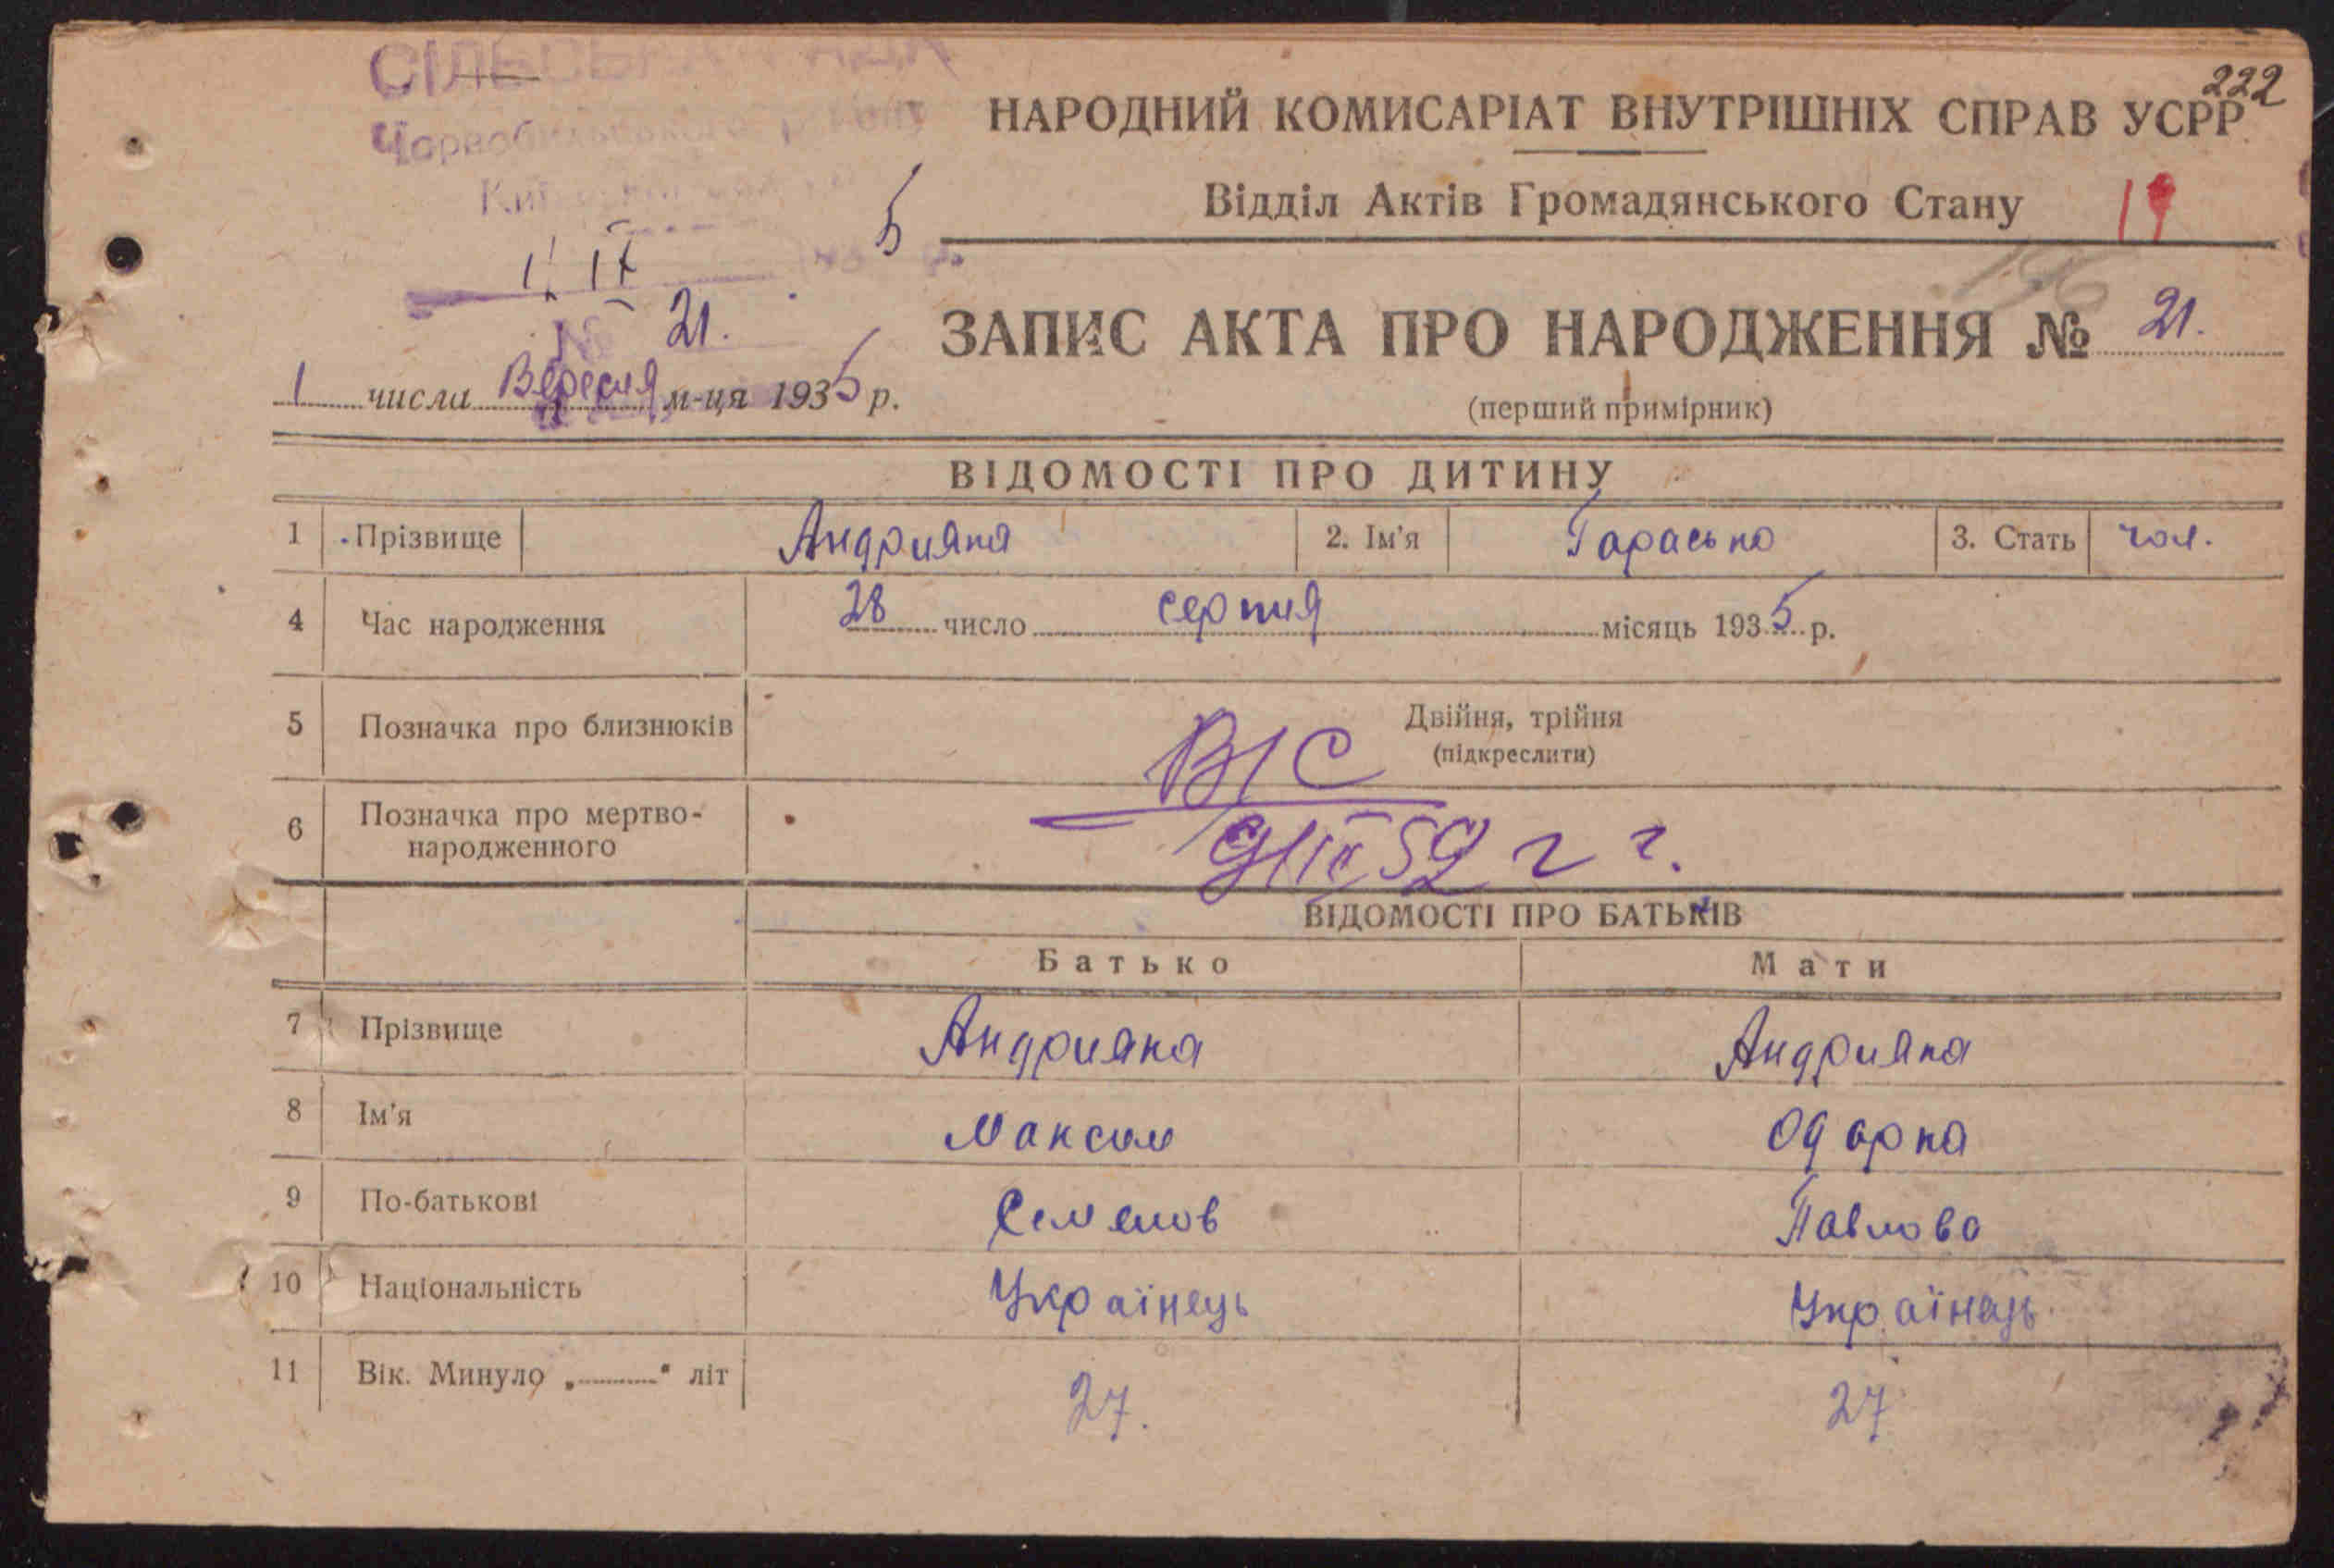 222
СІЛЬСЬКА РАДА
Чорнобильського району
НАРОДНИЙ КОМИСАРІАТ ВНУТРІШНІХ СПРАВ УСРР
Відділ Актів Громадянського Стану 19
1 ІХ 5
196
№ 21.
ЗАПИС АКТА ПРО НАРОДЖЕННЯ № 21.
1 числа Вересня м-ця 1935 р.
(перший примірник)
ВІДОМОСТІ ПРО ДИТИНУ
1 Прізвище Андрияка 2. Ім'я Тарасько 3. Стать чол.
4 Час народження 28 число серпня місяць 1935 р.
5 Позначка про близнюків Двійня, трійня
(підкреслити)
В/С
6 Позначка про мертво-
народженного
52 г
ВІДОМОСТІ ПРО БАТЬКІВ
Батько Мати
7 Прізвище Андрияка Андрияка
8 Ім'я Максим Одарка
9 По-батькові Семенов Павлова
10 Національність Українець Українець
11 Вік. Минуло „ “ літ 27. 27